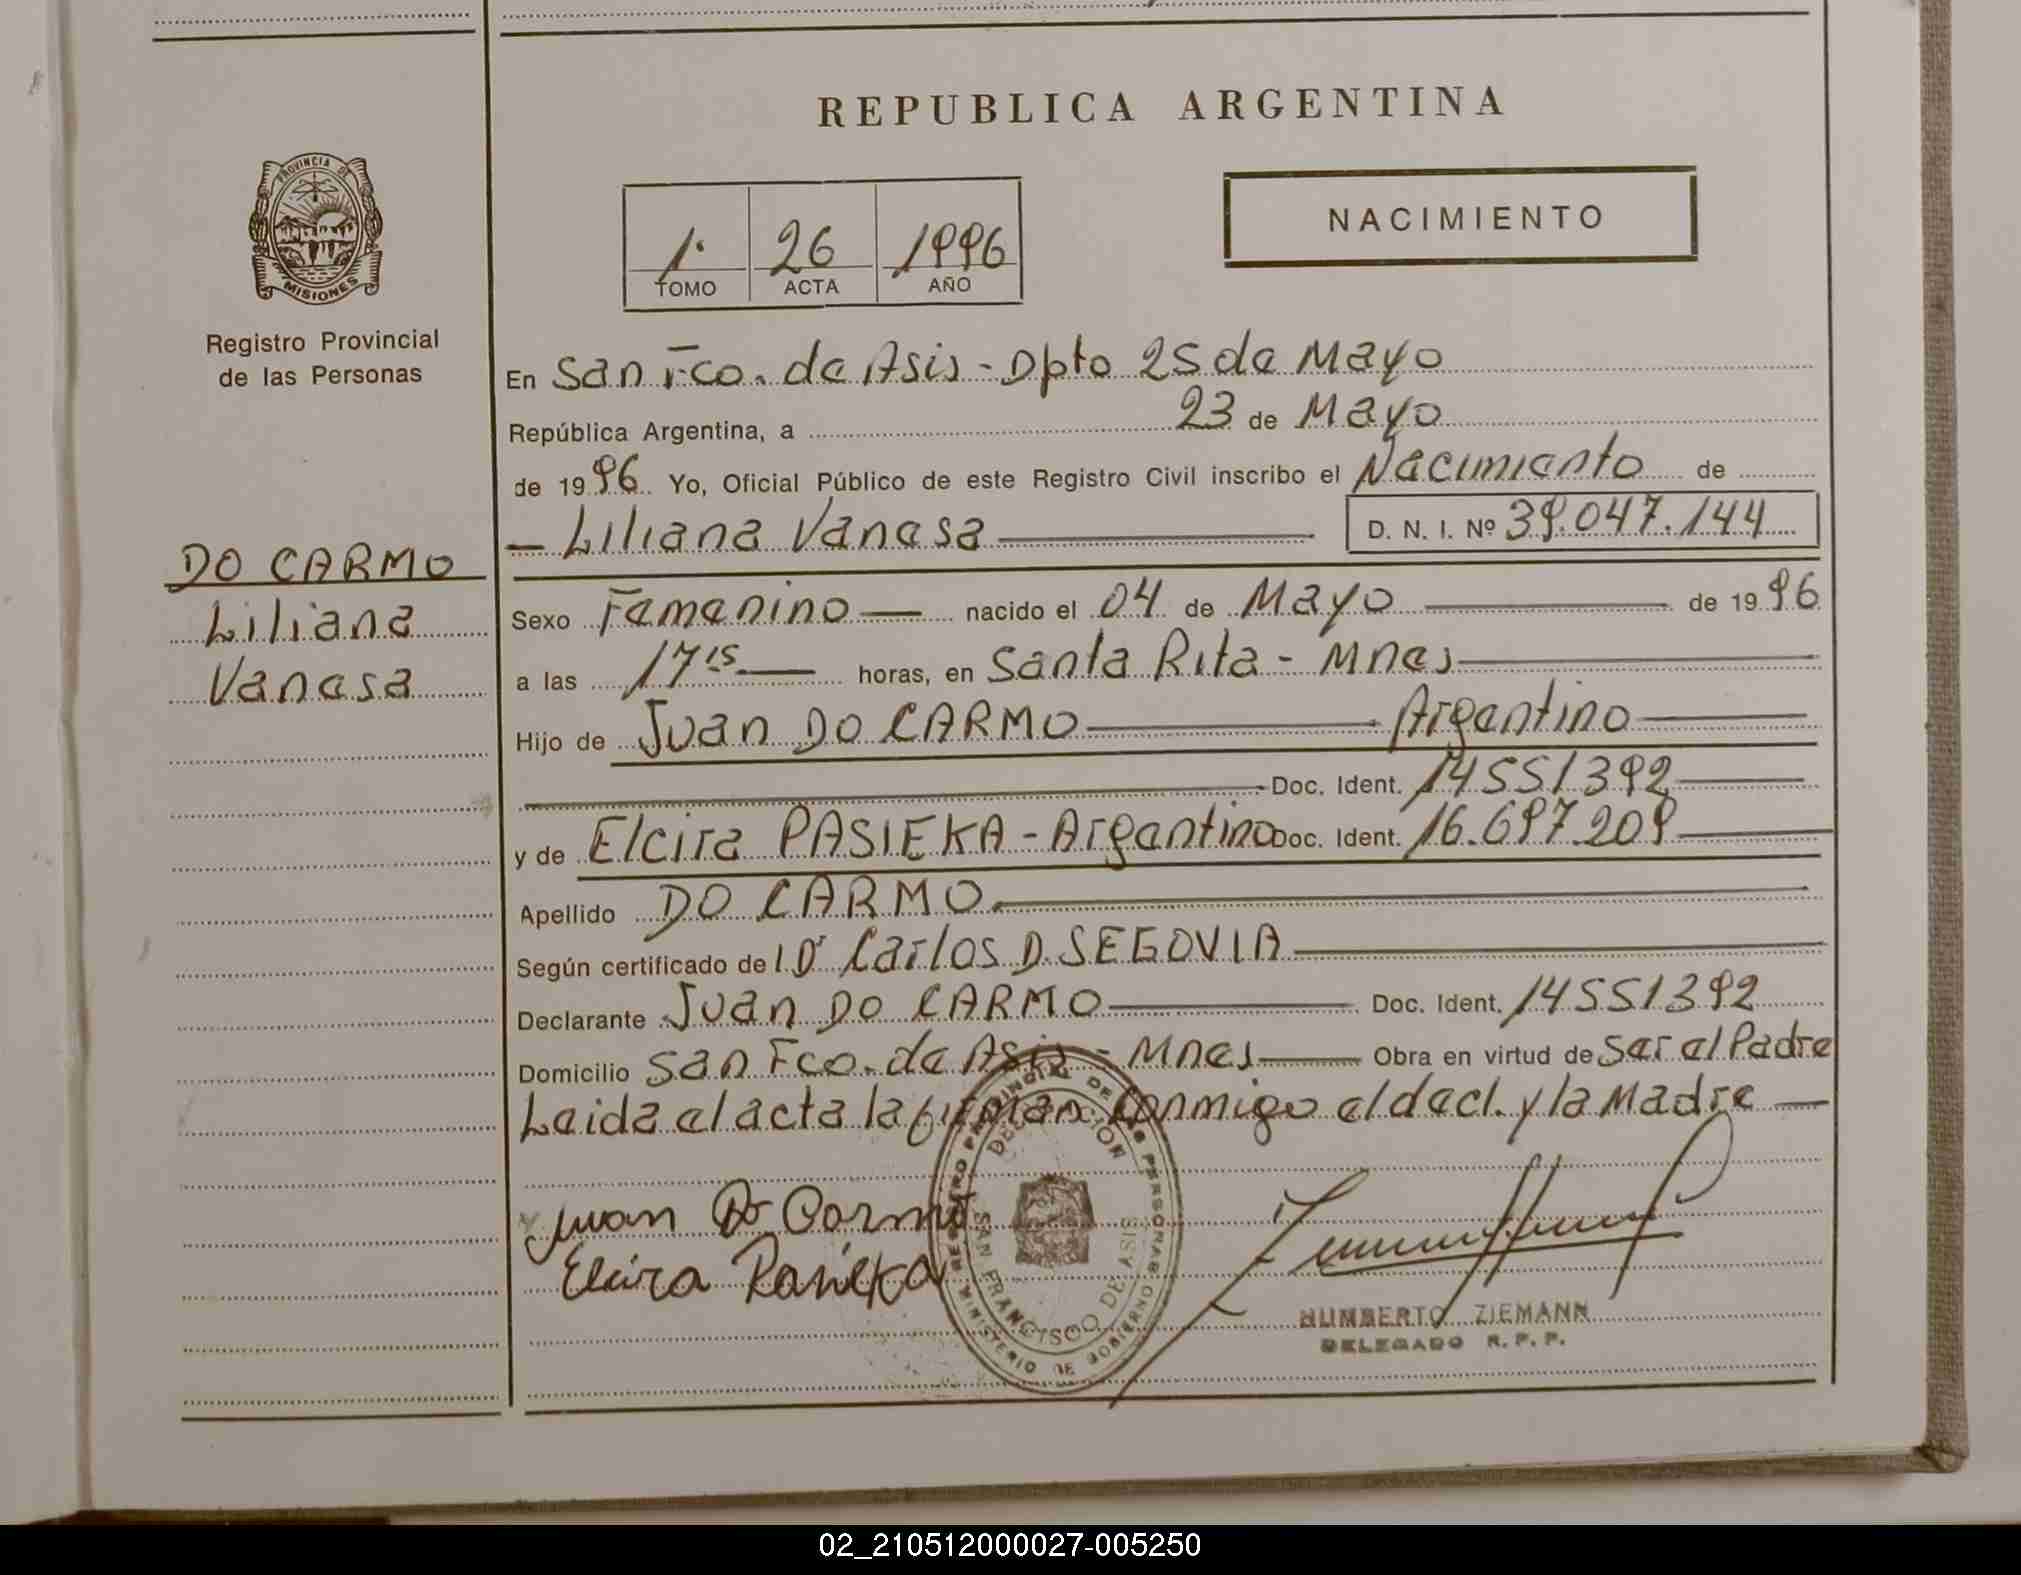 REPUBLICA ARGENTINA
PROVINCIA DE
MISIONES
Registro Provincial
de las Personas
1º 26 1996
TOMO ACTA AÑO
NACIMIENTO
En San Fco. de Asis - Dpto 25 de Mayo
República Argentina, a 23 de Mayo
de 1996 Yo, Oficial Público de este Registro Civil inscribo el Nacimiento de
- Liliana Vanesa D. N. I. Nº 39.047.144
DO CARMO
Liliana
Vanesa
Sexo Femenino nacido el 04 de Mayo de 1996
a las 17 15 horas, en Santa Rita - Mnes
Hijo de Juan DO CARMO Argentino
Doc. Ident. 14551392
y de Elcira PASIEKA - Argentino Doc. Ident. 16.697.209
Apellido DO CARMO
Según certificado del Dr Carlos D. SEGOVIA
Declarante Juan DO CARMO Doc. Ident. 14551392
Domicilio San Fco. de Asis - Mnes Obra en virtud de Ser el Padre
Leida el acta la firman Conmigo el decl. y la Madre
Juan Do Carmo
Elcira Pasieka
REGISTRO PROVINCIAL DE LAS PERSONAS
DELEGACION
SAN FRANCISCO DE ASIS
MINISTERIO DE GOBIERNO
HUMBERTO ZIEMANN
DELEGADO R. P. P.
02_210512000027-005250